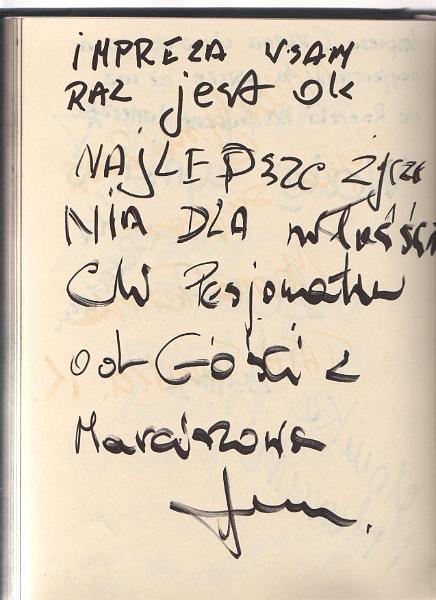 IMPREZA VSAM
RAZ jest OK
NAJLEPSZE życze
NIA DLA właści
CIeli Pesjonatu
od Górki z